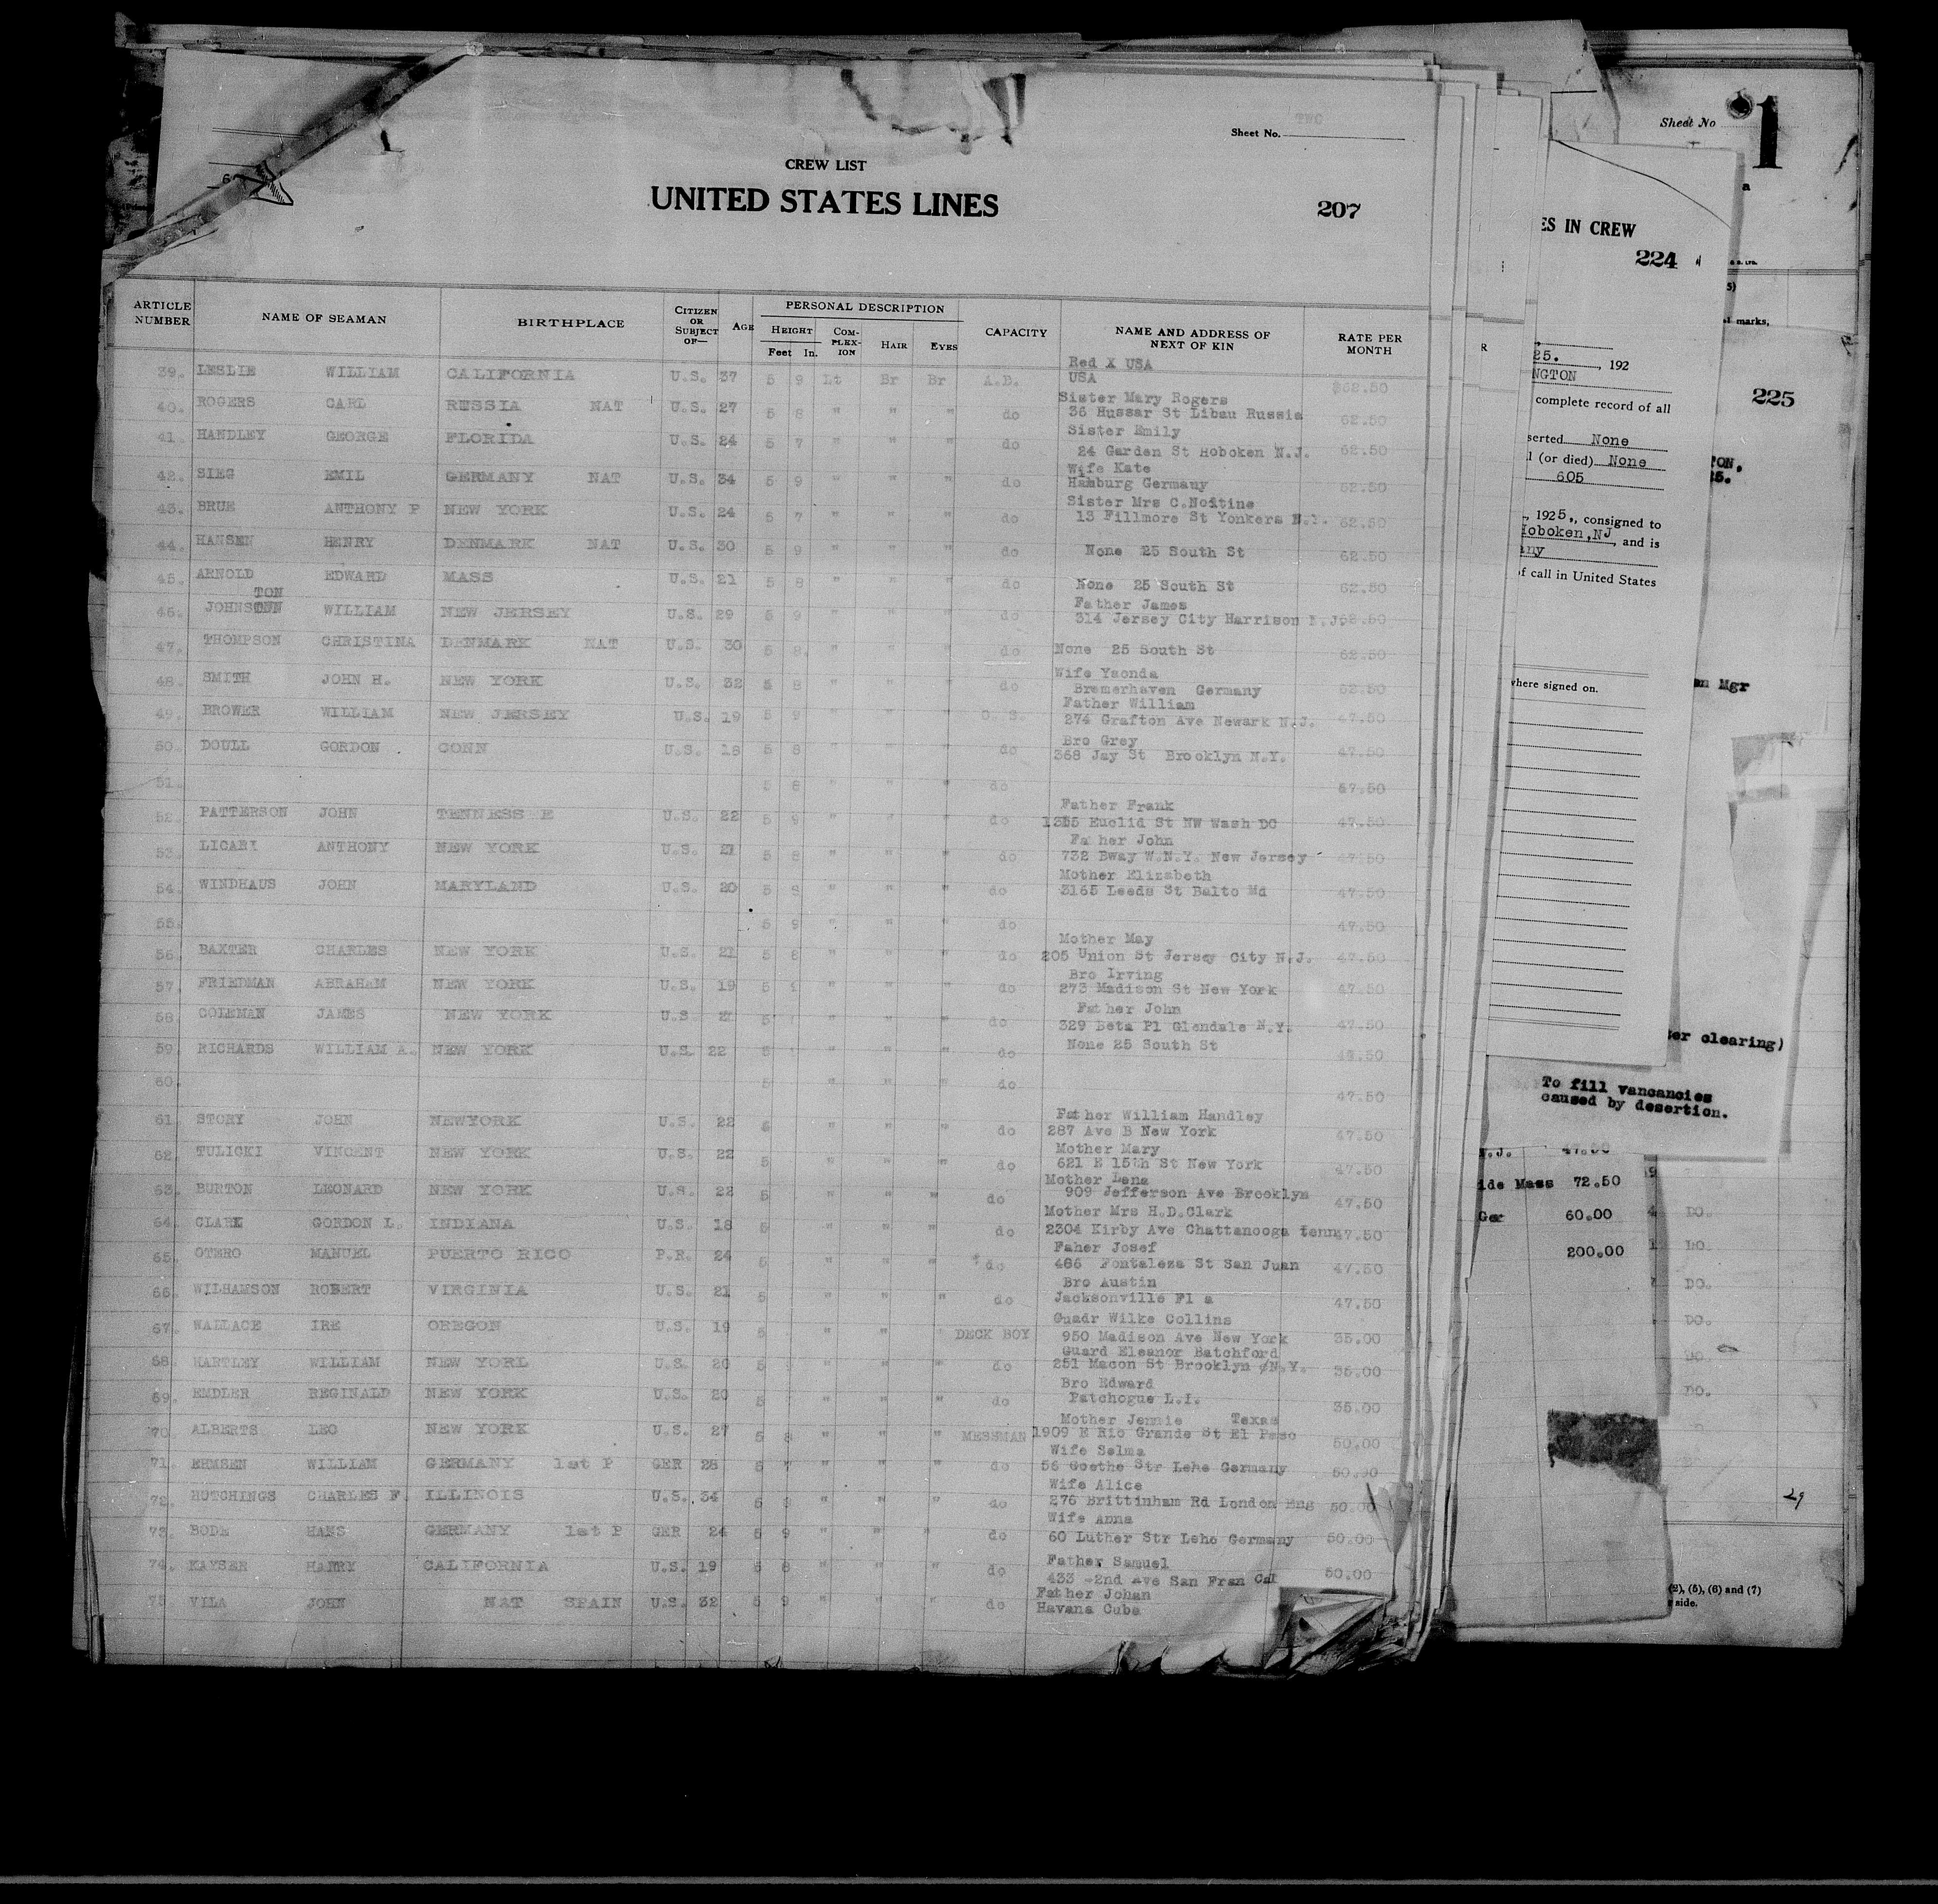 Sheet No. TWO
CREW LIST
UNITED STATES LINES
207
ARTICLE NUMBER NAME OF SEAMAN BIRTHPLACE CITIZEN OR SUBJECT OF— AGE PERSONAL DESCRIPTION HEIGHT Feet In. COM-PLEX-ION HAIR EYES CAPACITY NAME AND ADDRESS OF NEXT OF KIN RATE PER MONTH
Red X USA
39. LESLIE WILLIAM CALIFORNIA U.S. 37 5 9 Lt Br Br A.B. USA $62.50
Sister Mary Rogers
40. ROGERS CARL RUSSIA NAT U.S. 27 5 8 " " " do 36 Hussar St Libau Russia 62.50
Sister Emily
41. HANDLEY GEORGE FLORIDA U.S. 24 5 7 " " " do 24 Garden St Hoboken N.J. 62.50
Wife Kate
42. SIEG EMIL GERMANY NAT U.S. 34 5 9 " " " do Hamburg Germany 62.50
Sister Mrs C.Noitine
43. BRUE ANTHONY P NEW YORK U.S. 24 5 7 " " " do 13 Fillmore St Yonkers N.Y. 62.50
44. HANSEN HENRY DENMARK NAT U.S. 30 5 9 " " " do None 25 South St 62.50
45. ARNOLD EDWARD MASS U.S. 21 5 8 " " " do None 25 South St 62.50
TON
Father James
46. JOHNS WILLIAM NEW JERSEY U.S. 29 5 9 " " " do 314 Jersey City Harrison N.J. 62.50
47. THOMPSON CHRISTINA DENMARK NAT U.S. 30 5 8. " " " do None 25 South St 62.50
Wife Ysonda
48. SMITH JOHN H. NEW YORK U.S. 32 5 8 " " " do Bremerhaven Germany 62.50
Father William
49. BROWER WILLIAM NEW JERSEY U.S. 19 5 9 " " " O.S. 274 Grafton Ave Newark N.J. 47.50
Bro Grey
50. DOULL GORDON CONN U.S. 18 5 8 " " " do 368 Jay St Brooklyn N.Y. 47.50
51. 5 8 " " " do 57.50
Father Frank
52. PATTERSON JOHN TENNESS E U.S. 22 5 9 " " " do Euclid St NW Wash DC 47.50
Fa her John
53. LICARI ANTHONY NEW YORK U.S. 21 5 8 " " " do 732 Bway W.N.Y. New Jersey 47.50
Mother Elizabeth
54. WINDHAUS JOHN MARYLAND U.S. 20 5 8 " " " do 3165 Leeds St Balto Md 47.50
55. 5 9 " " " do 47.50
Mother May
56. BAXTER CHARLES NEW YORK U.S. 21 5 8 " " " do 205 Union St Jersey City N.J. 47.50
Bro Irving
57. FRIEDMAN ABRAHAM NEW YORK U.S. 19 5 " " " do 273 Madison St New York 47.50
Father John
58. COLEMAN JAMES NEW YORK U.S. 21 5 " " " do 329 Beta Pl Glendale N.Y. 47.50
59. RICHARDS WILLIAM A. NEW YORK U.S. 22 5 " " " do None 25 South St 47.50
60. 5 " " " do 47.50
Father William Handley
61. STORY JOHN NEWYORK U.S. 22 5 " " " do 287 Ave B New York 47.50
Mother Mary
62. TULICKI VINCENT NEW YORK U.S. 22 5 " " " do 621 E 15th St New York 47.50
Mother Lena
63. BURTON LEONARD NEW YORK U.S. 22 5 " " " do 909 Jefferson Ave Brooklyn 47.50
Mother Mrs H.D.Clark
64. CLARK GORDON L. INDIANA U.S. 18 5 " " " do 2304 Kirby Ave Chattanooga tenn 47.50
Faher Josef
65. OTERO MANUEL PUERTO RICO P.R. 24 5 " " " do 466 Fontaleza St San Juan 47.50
Bro Austin
66. WILHAMSON ROBERT VIRGINIA U.S. 21 5 " " " do Jacksonville Fl a 47.50
Guadr Wilke Collins
67. WALLACE IRE OREGON U.S. 19 5 " " " DECK BOY 950 Madison Ave New York 35.00
Guard Eleanor Batchford
68. HARTLEY WILLIAM NEW YORL U.S. 20 5 " " " do 251 Macon St Brooklyn N.Y. 35.00
Bro Edward
69. EMDLER REGINALD NEW YORK U.S. 20 5 " " " do Patchogue L.I. 35.00
Mother Jennie Texas
70. ALBERTS LEO NEW YORK U.S. 27 5 8 " " " MESSMAN 1909 E Rio Grande St El Paso 50.00
Wife Selma
71. EHMSEN WILLIAM GERMANY 1st P GER 28 5 7 " " " do 56 Goethe Str Lehe Germany 50.00
Wife Alice
72. HUTCHINGS CHARLES F. ILLINOIS U.S. 34 5 " " " do 276 Brittinham Rd London Eng 50.00
Wife Anna
73. BODE HANS GERMANY 1st P GER 24 5 9 " " " do 60 Luther Str Lehe Germany 50.00
Father Samuel
74. KAYSER HARRY CALIFORNIA U.S. 19 5 8 " " " do 433 -2nd Ave San Fran Cal 50.00
Father Johan
75. VILA JOHN NAT SPAIN U.S. 32 5 9 " " " do Havana Cuba
Sheet No
1
ES IN CREW
224
marks,
25. , 192
NGTON
complete record of all
225
serted None
l (or died) None
605
TON.
25.
, 1925., consigned to
Hoboken,NJ , and is
any
of call in United States
where signed on.
an Mgr
ter clearing)
To fill vancancies
caused by desertion.
N.J. 47.50
ide Mass 72.50
Ger 60.00
200.00
DO.
DO.
DO.
DO.
DO.
DO.
29
(2), (5), (6) and (7)
side.